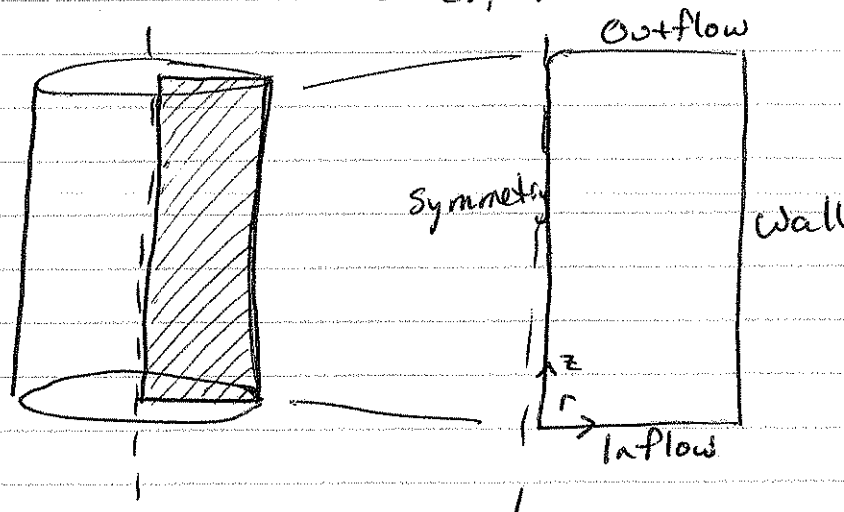 Outflow
Symmetry
Wall
z
r
Inflow